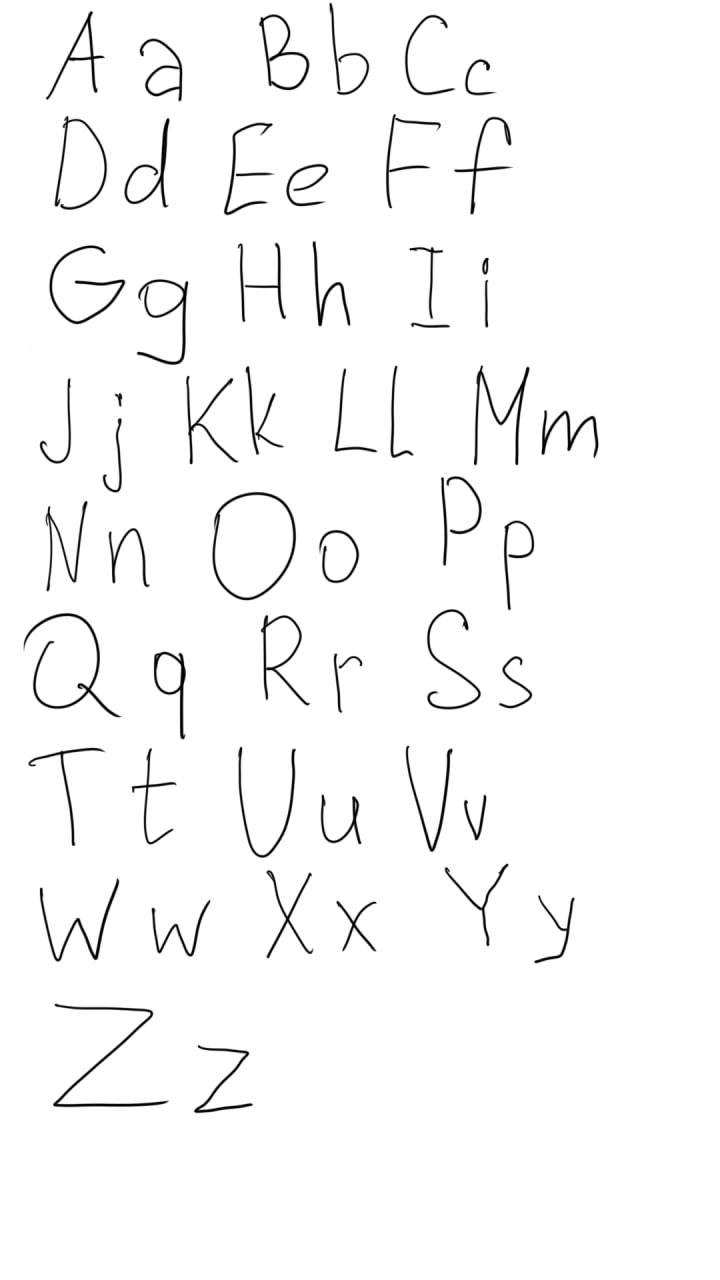 A a B b C c
D d E e F f
G g H h I i
J j K k L l M m
N n O o P p
Q q R r S s
T t U u V v
W w X x Y y
Z z